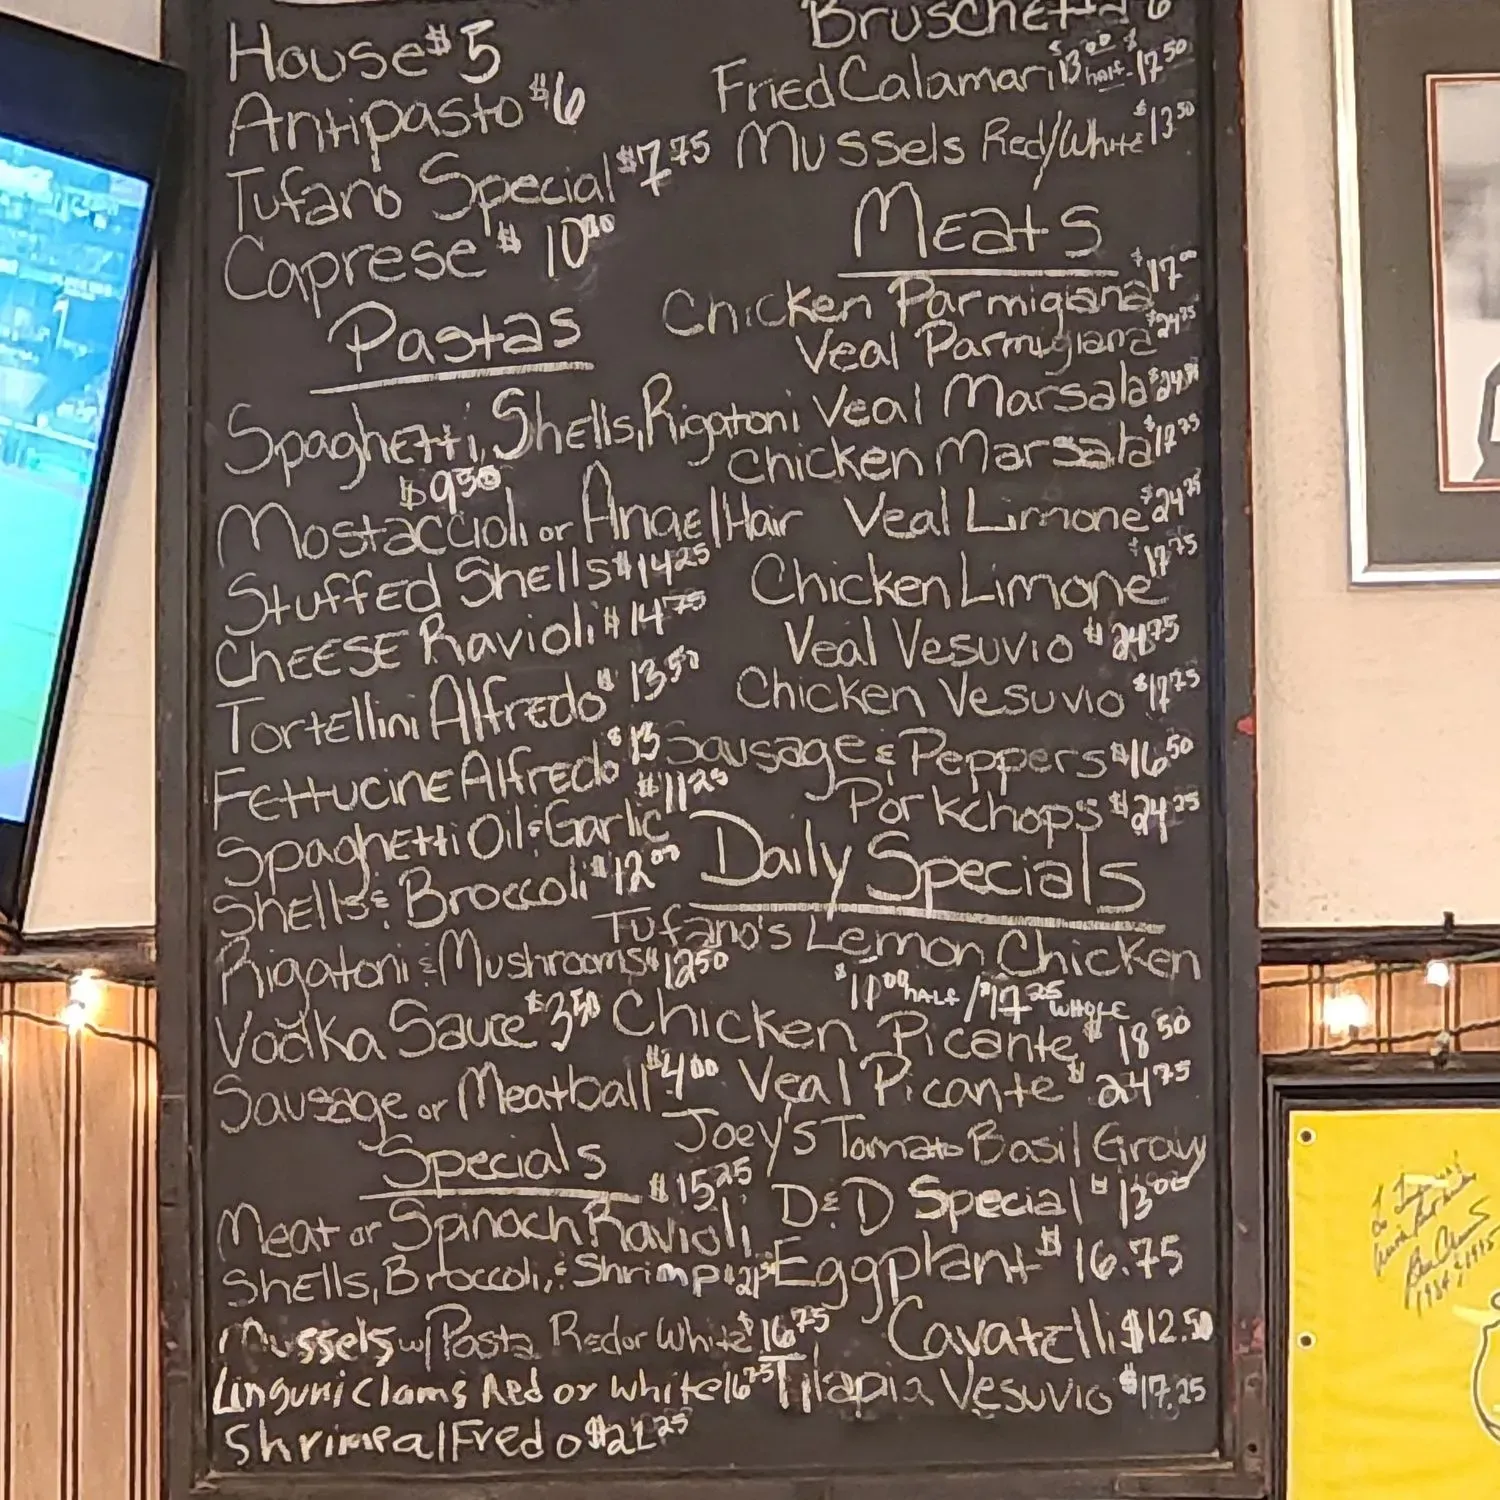 House $5
Antipasto $6
Tufano Special $7.75
Caprese $10.00
Pastas
Spaghetti, Shells, Rigatoni
$9.50
Mostaccioli or Angel Hair
Stuffed Shells $14.25
Cheese Ravioli $14.75
Tortellini Alfredo $13.50
Fettucine Alfredo $13
Spaghetti Oil & Garlic $11.25
Shells & Broccoli $12.00
Rigatoni & Mushrooms $12.50
Vodka Sauce $3.50
Sausage or Meatball $4.00
Specials
Meat or Spinach Ravioli $15.25
Shells, Broccoli, & Shrimp
Mussels w/ Pasta Red or White $16.75
Linguni Clams Red or White 16.75
Shrimp alFredo $21.25
Bruschetta 6
Fried Calamari $13.00 half-
Mussels Red/White $13.50
Meats
Chicken Parmigiana $17.00
Veal Parmigiana
Veal Marsala
Chicken Marsala $17.75
Veal Limone
Chicken Limone $17.75
Veal Vesuvio $24.75
Chicken Vesuvio $17.75
Sausage & Peppers $16.50
Porkchops $24.25
Daily Specials
Tufano's Lemon Chicken
half / $17.25 whole
Chicken Picante $18.50
Veal Picante $24.75
Joey's Tomato Basil Gravy
D&D Special $13.00
Eggplant $16.75
Cavatelli $12.50
Tilapia Vesuvio $17.25